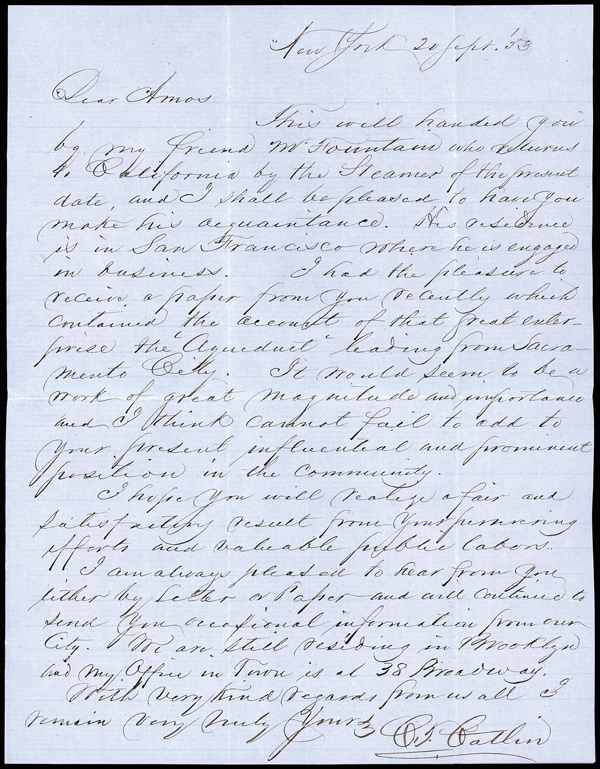 New York 20 Sept. '53
Dear Amos
This will handed you
by my friend Mr Fountain who returns
to California by the Steamer of the present
date, and I shall be pleased to have you
make his acquaintance. His residence
is in San Francisco where he is engaged
in business. I had the pleasure to
receive a paper from you recently which
contained the account of that great enter-
prise the "Aqueduct" leading from Sacra-
mento City. It would seem to be a
work of great magnitude and importance
and I think cannot fail to add to
your present influential and prominent
position in the community.
I hope you will realize a fair and
satisfactory result from your persevering
efforts and valuable public labors.
I am always pleased to hear from you
either by Letter or Paper and will continue to
send you occasional information from our
City. We are still residing in Brooklyn
and my Office in Town is at 38 Broadway.
With very kind regards from us all I
remain very truly Yours
Catlin